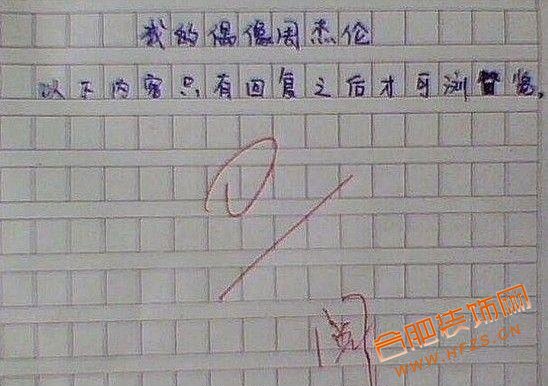 我的偶像周杰伦
以下内容只有回复之后才可浏览。
0
阅
合肥装饰网
WWW.HFZS.CN